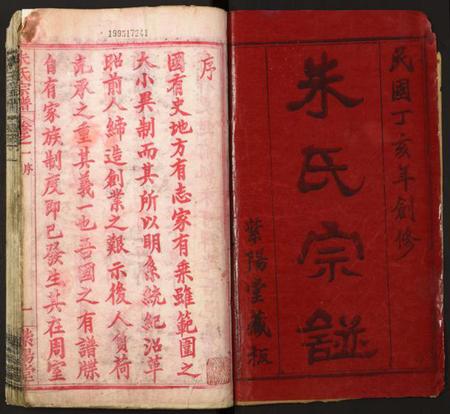 民國丁亥年創修
朱氏宗譜
紫陽堂藏板
199517241
序
國有史地方有志家有乘雖範圍之
大小異制而其所以明系統紀沿革
昭前人締造創業之艱示後人負荷
承之重其義一也吾國之有譜牒
自有家族制度即已發生其在周室
朱氏宗譜
卷之一
序
一
紫陽堂